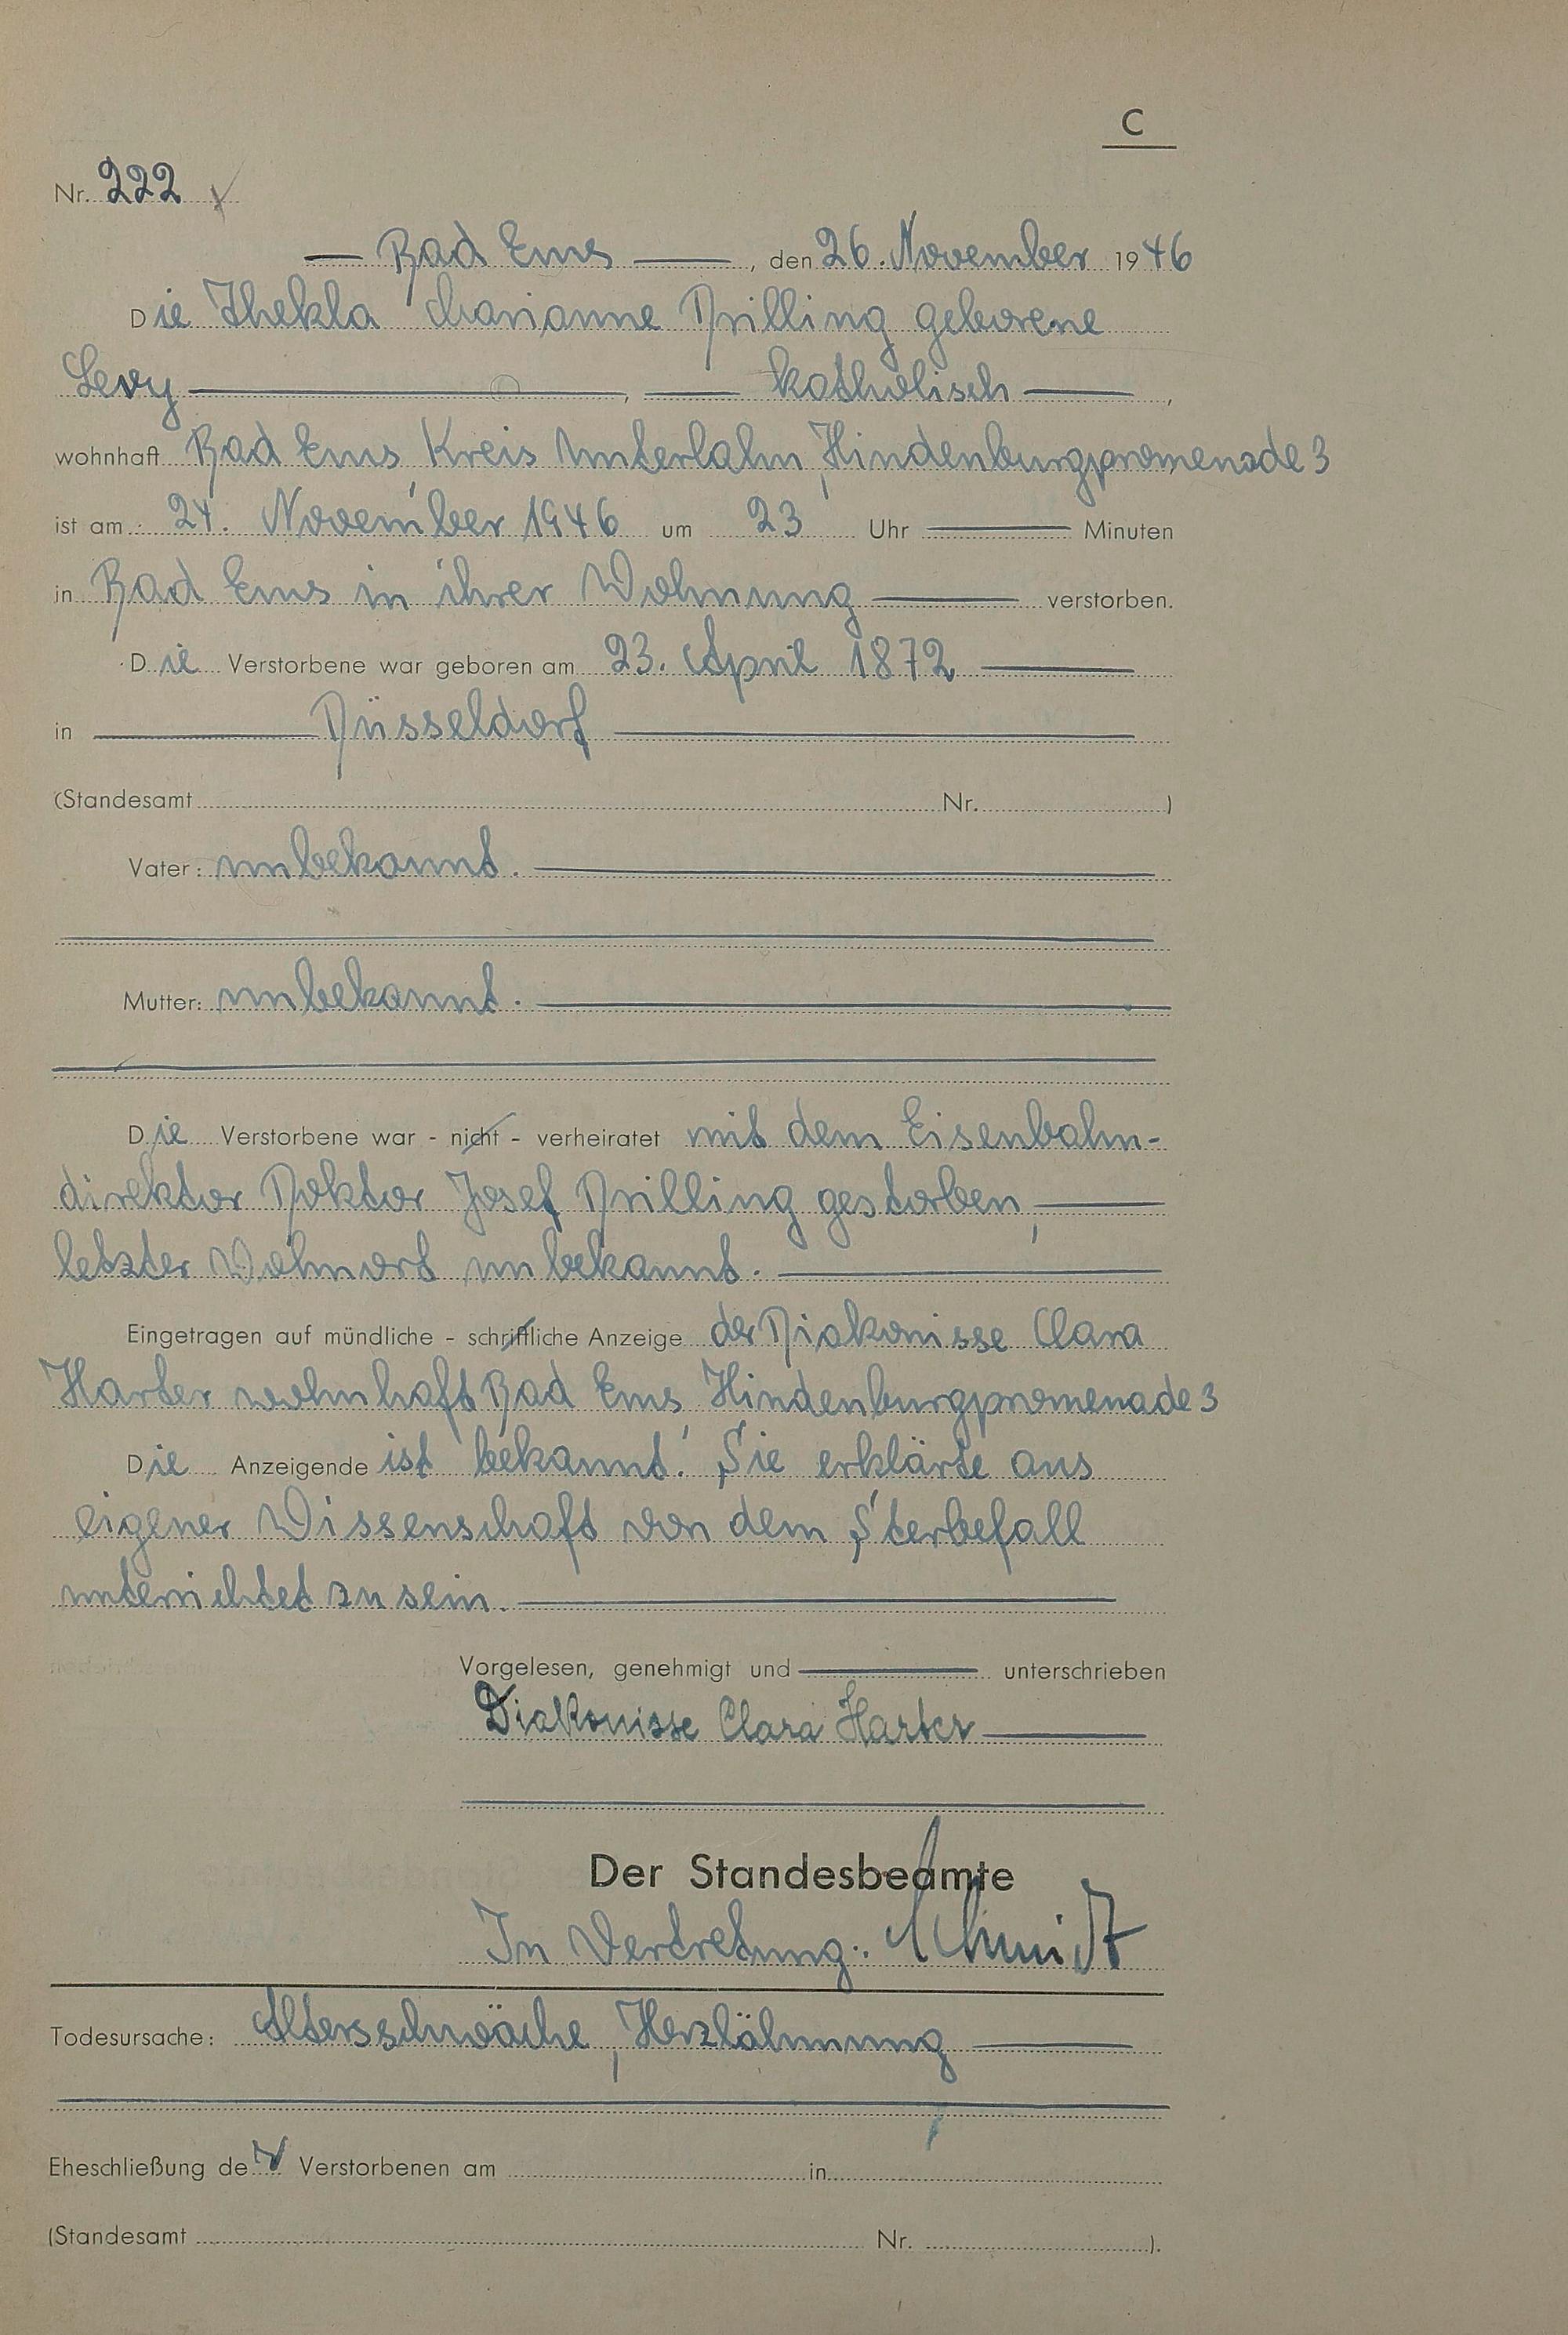 C
Nr. 222
Bad Ems, den 26. November 1946
Die Thekla Marianne Drilling geborene
Levy, katholisch,
wohnhaft Bad Ems, Kreis Unterlahn, Hindenburgpromenade 3
ist am 24. November 1946 um 23 Uhr Minuten
in Bad Ems in ihrer Wohnung verstorben.
Die Verstorbene war geboren am 23. April 1872
in Düsseldorf
(Standesamt Nr. )
Vater: unbekannt.
Mutter: unbekannt.
Die Verstorbene war - nicht - verheiratet mit dem Eisenbahn-
direktor Doktor Josef Drilling gestorben,
letzter Wohnort unbekannt.
Eingetragen auf mündliche - schriftliche Anzeige der Diakonisse Clara
Harter wohnhaft Bad Ems, Hindenburgpromenade 3
Die Anzeigende ist bekannt. Sie erklärte aus
eigener Wissenschaft von dem Sterbefall
unterrichtet zu sein.
Vorgelesen, genehmigt und unterschrieben
Diakonisse Clara Harter
Der Standesbeamte
In Vertretung: Schmidt
Todesursache: Altersschwäche, Herzlähmung
Eheschließung der Verstorbenen am in
(Standesamt Nr. ).